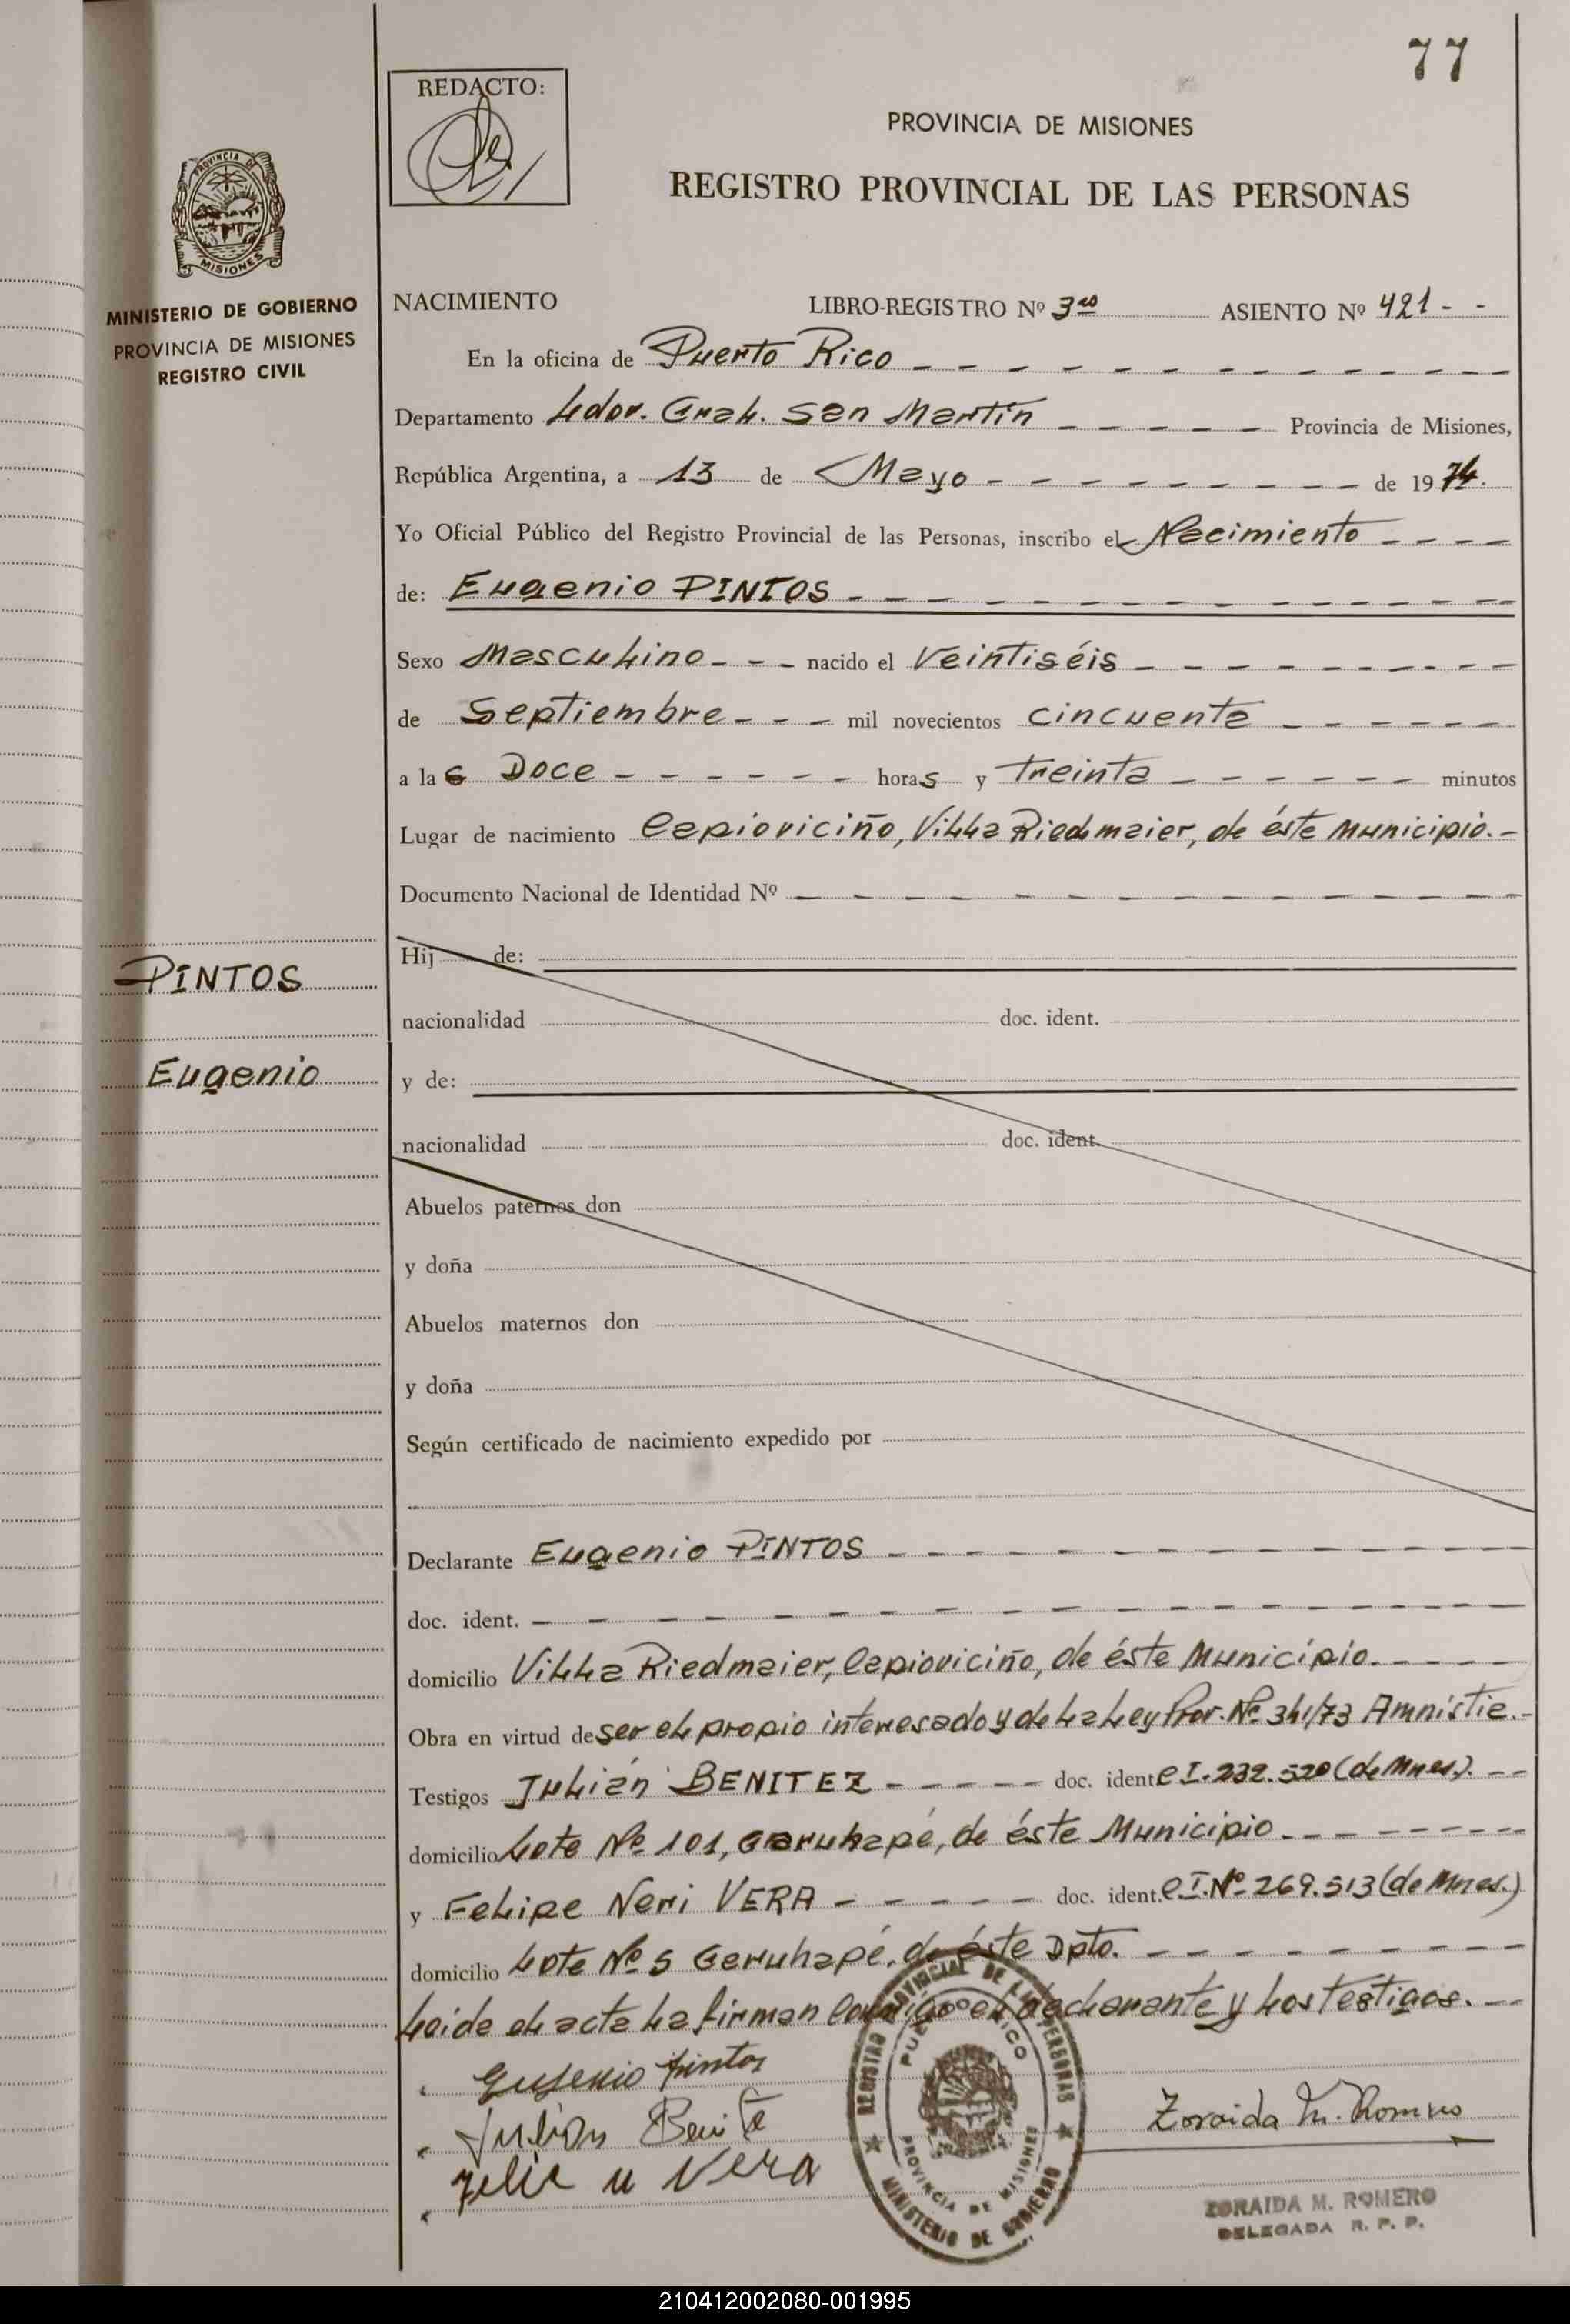 77
REDACTO:
PROVINCIA DE MISIONES
REGISTRO PROVINCIAL DE LAS PERSONAS
PROVINCIA DE
MISIONES
MINISTERIO DE GOBIERNO
PROVINCIA DE MISIONES
REGISTRO CIVIL
NACIMIENTO LIBRO-REGISTRO Nº 3º ASIENTO Nº 421 - -
En la oficina de Puerto Rico
Departamento Ldor. Gral. San Martín Provincia de Misiones,
República Argentina, a 13 de Mayo de 1974.
Yo Oficial Público del Registro Provincial de las Personas, inscribo el Nacimiento
de: Eugenio PINTOS
Sexo Masculino nacido el Veintiséis
de Septiembre mil novecientos cincuenta
a las Doce horas y treinta minutos
Lugar de nacimiento Capioviciño, Villa Riedmaier, de éste Municipio.-
Documento Nacional de Identidad Nº
Hij de:
nacionalidad doc. ident.
y de:
nacionalidad doc. ident.
Abuelos paternos don
y doña
Abuelos maternos don
y doña
Según certificado de nacimiento expedido por
PINTOS
Eugenio
Declarante Eugenio PINTOS
doc. ident.
domicilio Villa Riedmaier, Capioviciño, de éste Municipio.
Obra en virtud de ser el propio interesado y de la Ley Prov. Nº 341/73 Amnistia.-
Testigos Julián BENITEZ doc. ident C.I. 232.520 (de Mnes).
domicilio Lote Nº 101, Garuhapé, de éste Municipio
y Felipe Neri VERA doc. ident. C.I. Nº 269.513 (de Mnes.)
domicilio Lote Nº 5 Garuhapé, de éste Dpto.
Leida el acta la firman conmigo el declarante y los testigos.
Eugenio Pintos
Julian Benite
Felie n Vera
REGISTRO PROVINCIAL DE LAS PERSONAS
PUERTO RICO
PROVINCIA DE MISIONES
MINISTERIO DE GOBIERNO
Zoraida M. Romero
ZORAIDA M. ROMERO
DELEGADA R. P. P.
210412002080-001995